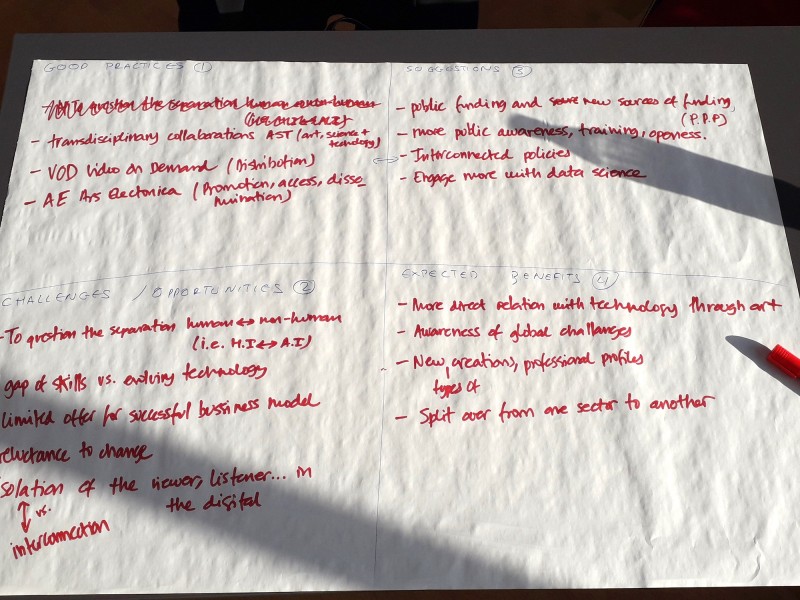 GOOD PRACTICES 1
To question the separation human non-human
- transdisciplinary collaborations AST (art, science + technology)
- VOD Video on Demand (Distribution)
- AE Ars Electronica (Promotion, access, disse
mination)
SUGGESTIONS 3
- public funding and new sources of funding
(P.P.P)
- more public awareness, training, openess.
- Interconnected policies
- Engage more with data science
CHALLENGES / OPPORTUNITIES 2
- To question the separation human ↔ non-human
(i.e. H.I ↔ A.I)
gap of skills vs. evolving technology
limited offer for successful bussiness model
reluctance to change
solation of the viewer, listener... in
the digital
↕ vs.
interconnection
EXPECTED BENEFITS 4
- More direct relation with technology through art
- Awareness of global challenges
- New creations, professional profiles
types of
- Split over from one sector to another